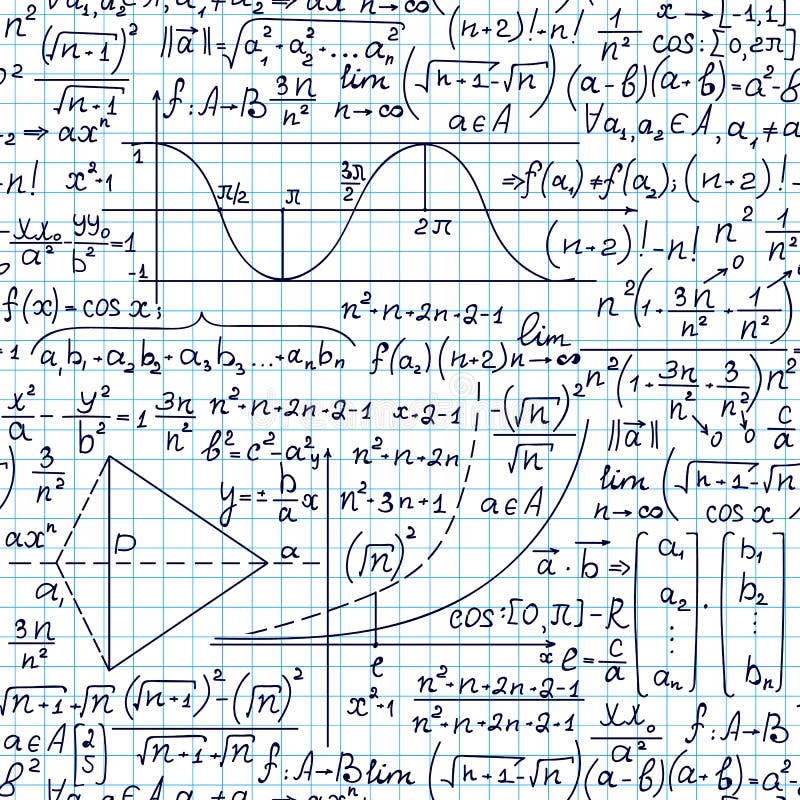 n² (√n+1)² / √n+1 ‖a⃗‖=√a₁²+a₂²+...aₙ² (n+2)!-n! 1/n² x→[-1,1]
cos:[0,2π]
f:A→B 3n/n² lim n→∞ (√n+1-√n) a∈A (a-b)(a+b)=a²-b
-2⇒axⁿ ∀a₁,a₂∈A,a₁≠a
1
-n! x²+1 π/2 π 3π/2 2π ⇒f(a₁)≠f(a₂);(n+2)!-
xx₀/a²-yy₀/b²=1 (n+2)!-n! n² 1/n²
-1 0
f(x)=cos x; n²+n+2n+2-1 n²(1+3n/n²+1/n²)
=1 (a₁b₁+a₂b₂+a₃b₃...+aₙbₙ f(a₂)(n+2) lim n→∞
n²(1+3n/n²+3/n²)n²
x²/a-y²/b²=1 3n/n² n²+n+2n+2-1 x+2-1 -(√n)²/√n ‖a⃗‖ 0 0 c/a
b²=c²-a² y n²+n+2n
3/n² y=±b/a x n²+3n+1 a∈A lim n→∞ (√n+1-√n
cos x
axⁿ D a (√n)² a⃗·b⃗⇒[a₁ a₂ ⋮ aₙ]·[b₁ b₂ ⋮ bₙ]
a₁ cos:[0,π]-R
3n/n² e x e=c/a
√n+1+√n (√n+1)²-(√n)² / √n+1+√n x²+1 n²+n+2n+2-1 / n²+n+2n+2+1 xx₀/a² f:A→B
a∈A [2 5]
b² f:A→B lim (√n+1-√n) (a-b)(a+b)=a²-